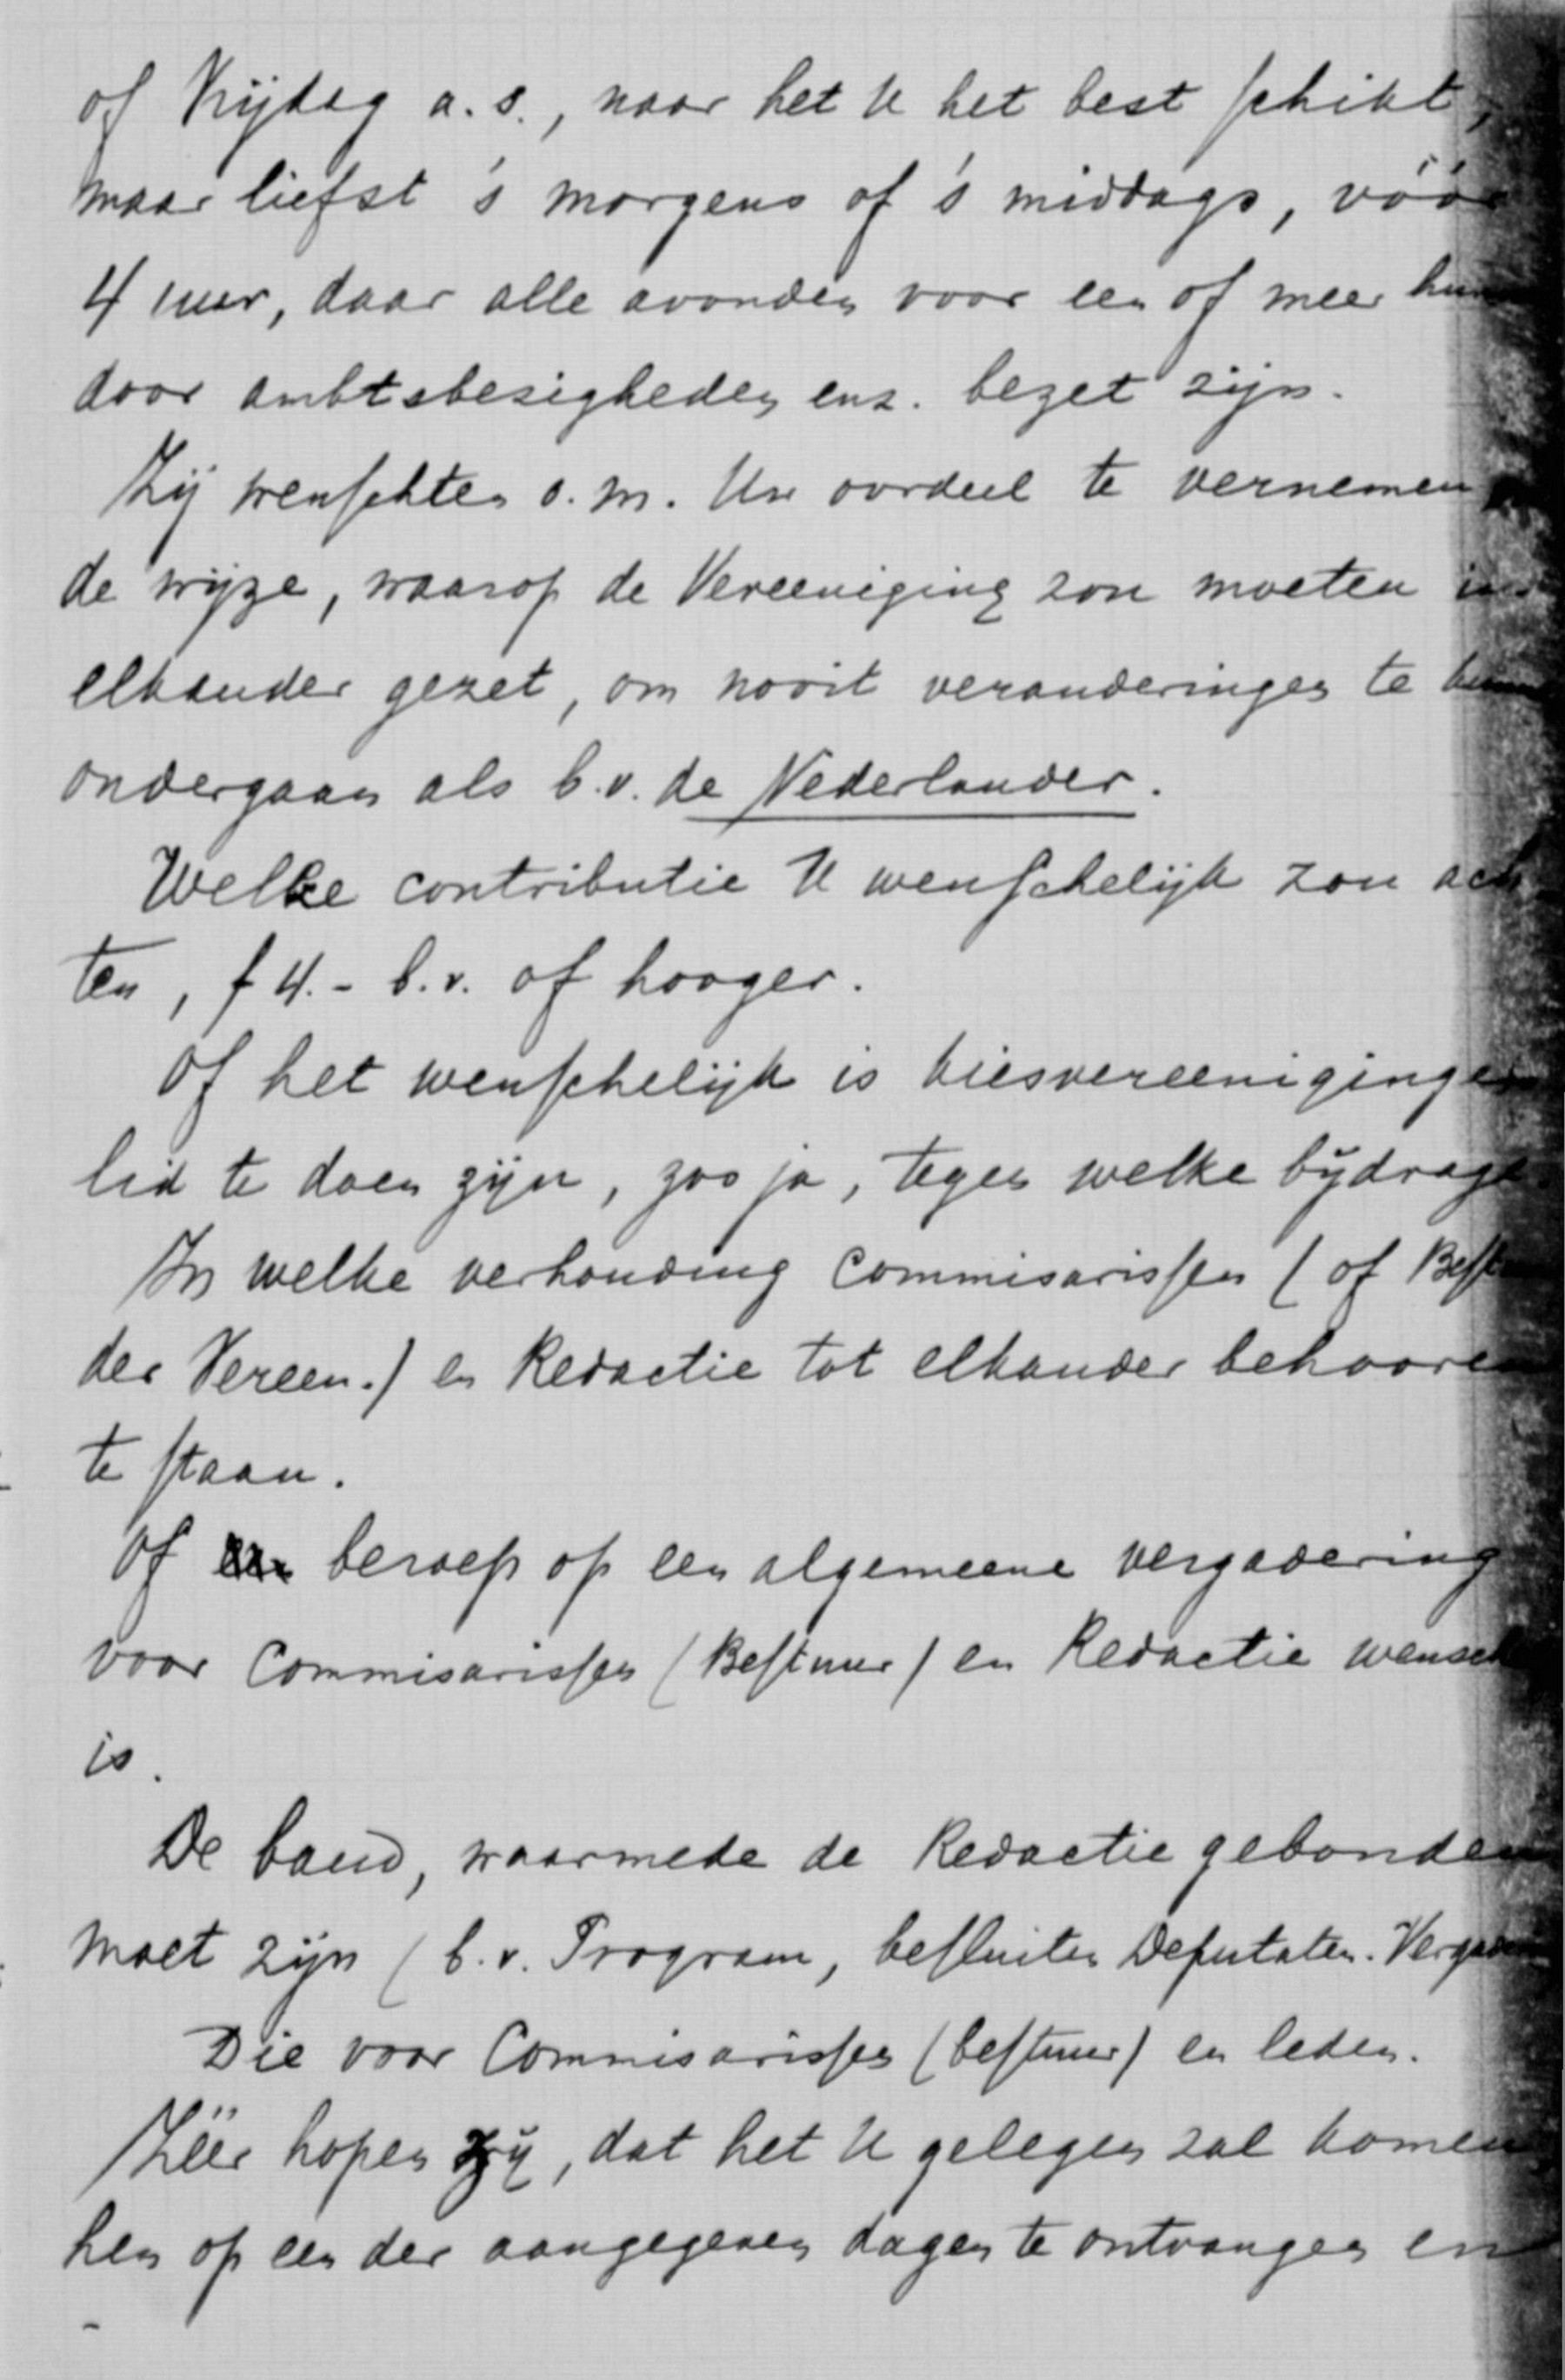 of Vrijdag a.s., naar het U het best schikt,
maar liefst 's morgens of 's middags, vóór
4 uur, daar alle avonden voor een of meer hun
door ambtsbesigheden enz. bezet zijn.
Zij wenschten o.m. Uw oordeel te vernemen
de wijze, waarop de Vereeniging zou moeten in
elkander gezet, om nooit veranderingen te
ondergaan als b.v. de Nederlander.
Welke contributie U wenschelijk zou ach
ten, f 4.- b.v. of hooger.
Of het wenschelijk is kiesvereenigingen
lid te doen zijn, zoo ja, tegen welke bijdrage.
In welke verhouding Commisarissen (of Best
der Vereen.) en Redactie tot elkander behooren
te staan.
Of een beroep op een algemeene vergadering
voor Commisarissen (Bestuur) en Redactie wensch
is.
De band, waarmede de Redactie gebonden
moet zijn (b.v. Program, besluiten Deputaten-Verga
Die voor Commisarissen (bestuur) en leden.
Zéér hopen zij, dat het U gelegen zal komen
hen op een der aangegeven dagen te ontvangen en